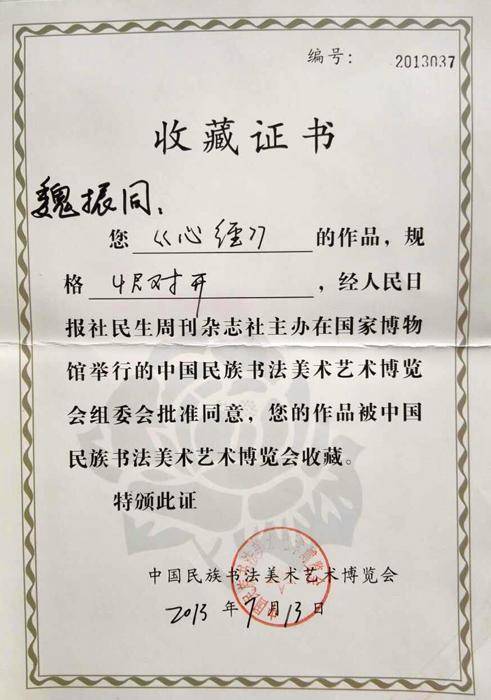 编号： 2013037
收藏证书
魏振同：
您《心经》的作品，规
格 4尺对开 ，经人民日
报社民生周刊杂志社主办在国家博物
馆举行的中国民族书法美术艺术博览
会组委会批准同意，您的作品被中国
民族书法美术艺术博览会收藏。
特颁此证
中国民族书法美术艺术博览会
2013年7月13日